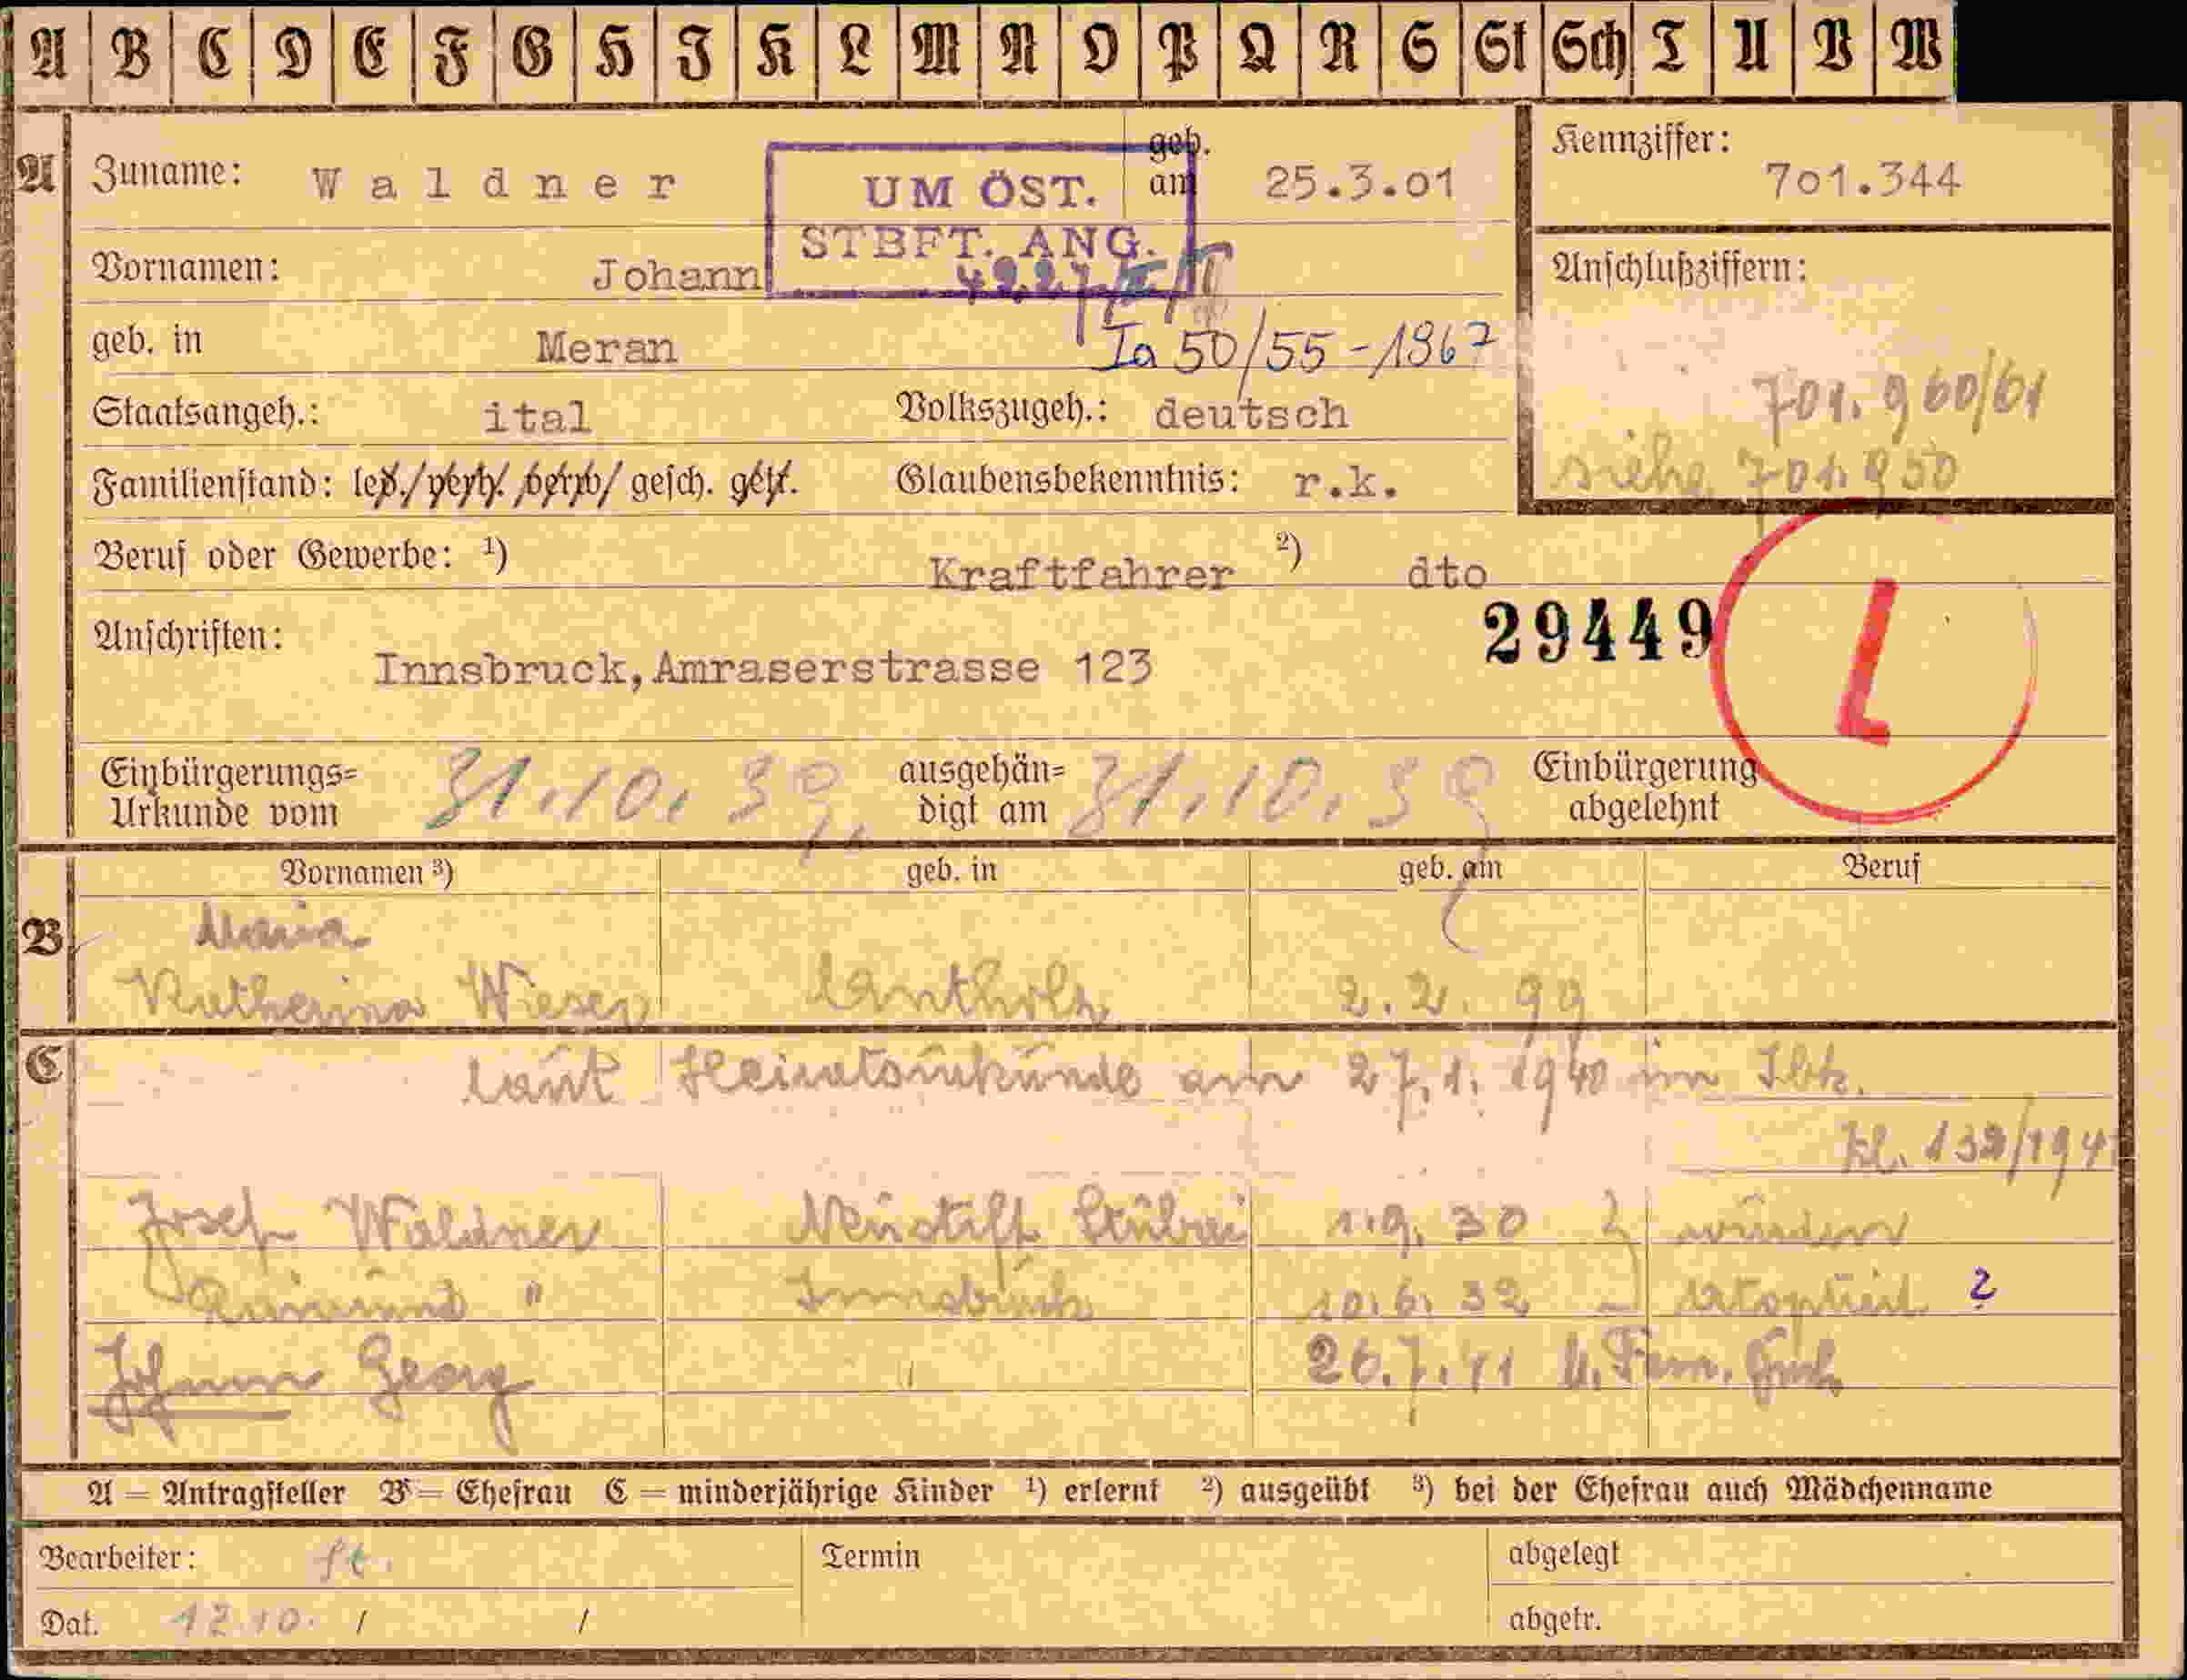 A B C D E F G H J K L M N O P Q R S St Sch T U V W
A Zuname: Waldner geb. am 25.3.01 Kennziffer: 701.344
UM ÖST.
STBFT. ANG.
Vornamen: Johann Anschlußziffern:
geb. in Meran Ia 50/55-1967
701.960/61
Staatsangeh.: ital Volkszugeh.: deutsch
siehe 701.950
Familienstand: led./verh./verw/ gesch. getr. Glaubensbekenntnis: r.k.
Beruf oder Gewerbe: ¹) Kraftfahrer ²) dto
29449 L
Anschriften: Innsbruck, Amraserstrasse 123
Einbürgerungs= 31.10.39 ausgehän= 31.10.39 Einbürgerung
Urkunde vom digt am abgelehnt
Vornamen ³) geb. in geb. am Beruf
Maria
B Katherina Wieser Antholz 2.2.99
C laut Heiratsurkunde am 27.1.1940 in Ibk.
Josef Waldner Neustift Stubai 1.9.30 wurden
Raimund " Innsbruck 10.6.32 ?
Johann Georg 26.7.41
A = Antragsteller B = Ehefrau C = minderjährige Kinder ¹) erlernt ²) ausgeübt ³) bei der Ehefrau auch Mädchenname
Bearbeiter: Termin abgelegt
Dat. 12.10. / / abgetr.